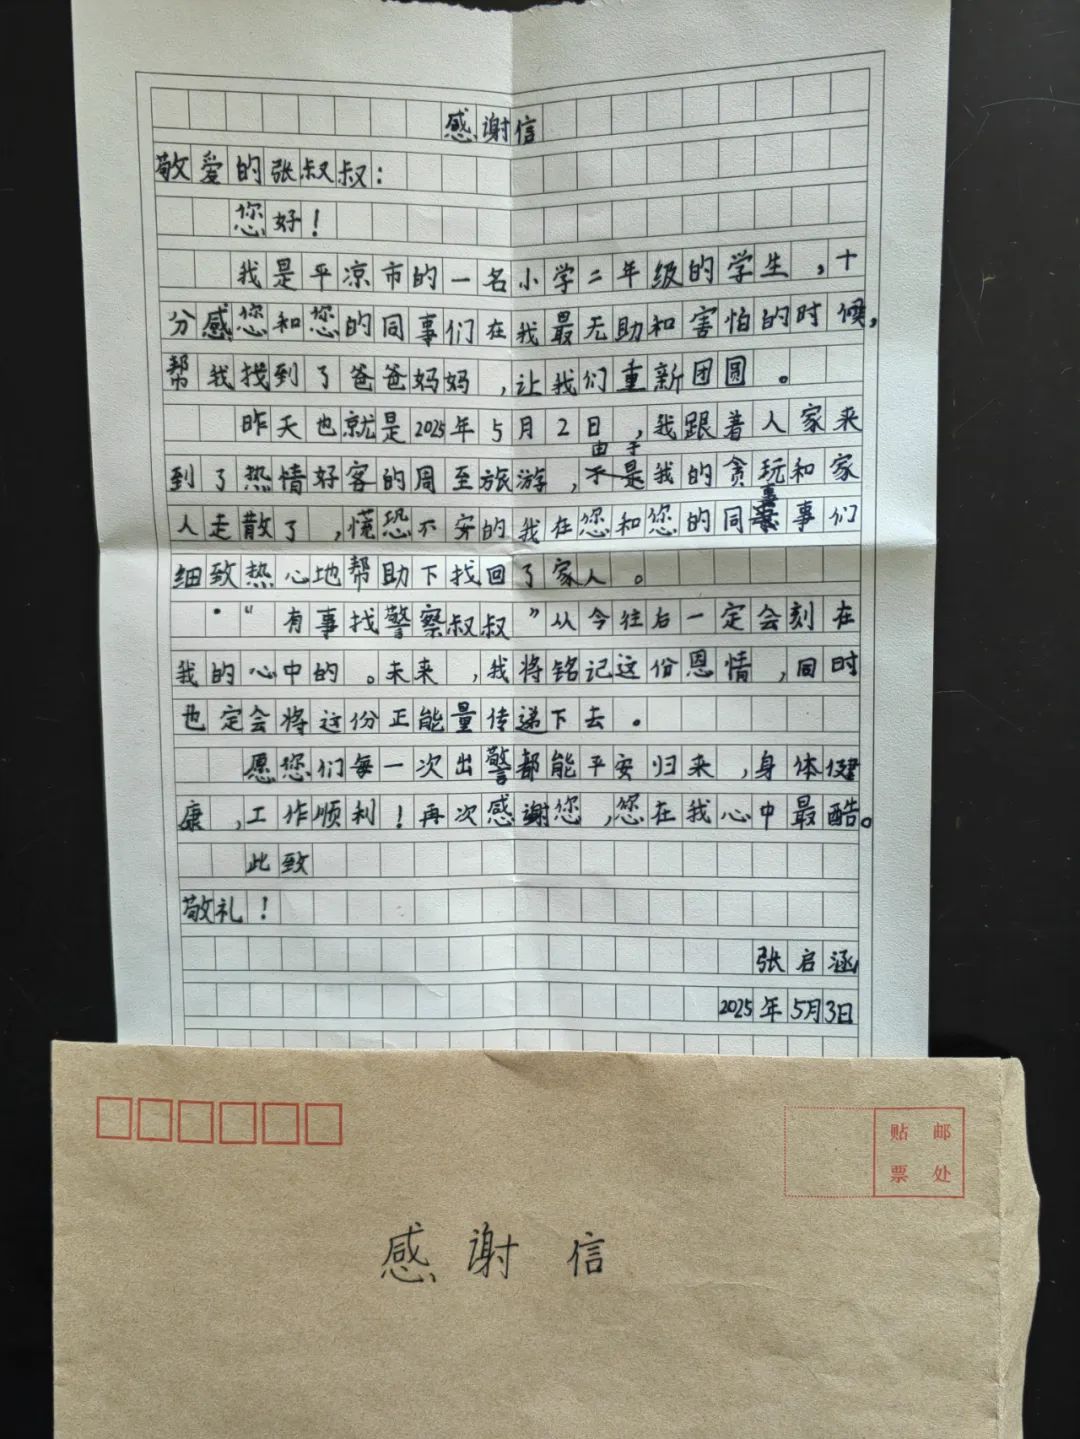 感谢信
敬爱的张叔叔：
您好！
我是平凉市的一名小学二年级的学生，十
分感您和您的同事们在我最无助和害怕的时候，
帮我找到了爸爸妈妈，让我们重新团圆。
昨天也就是2025年5月2日，我跟着人家来
到了热情好客的周至旅游，由于我的贪玩和家
人走散了，慌恐不安的我在您和您的同事们
细致热心地帮助下找回了家人。
“有事找警察叔叔”从今往后一定会刻在
我的心中的。未来，我将铭记这份恩情，同时
也定会将这份正能量传递下去。
愿您们每一次出警都能平安归来，身体健
康，工作顺利！再次感谢您，您在我心中最酷。
此致
敬礼！
张启涵
2025年5月3日
贴邮
票处
感谢信